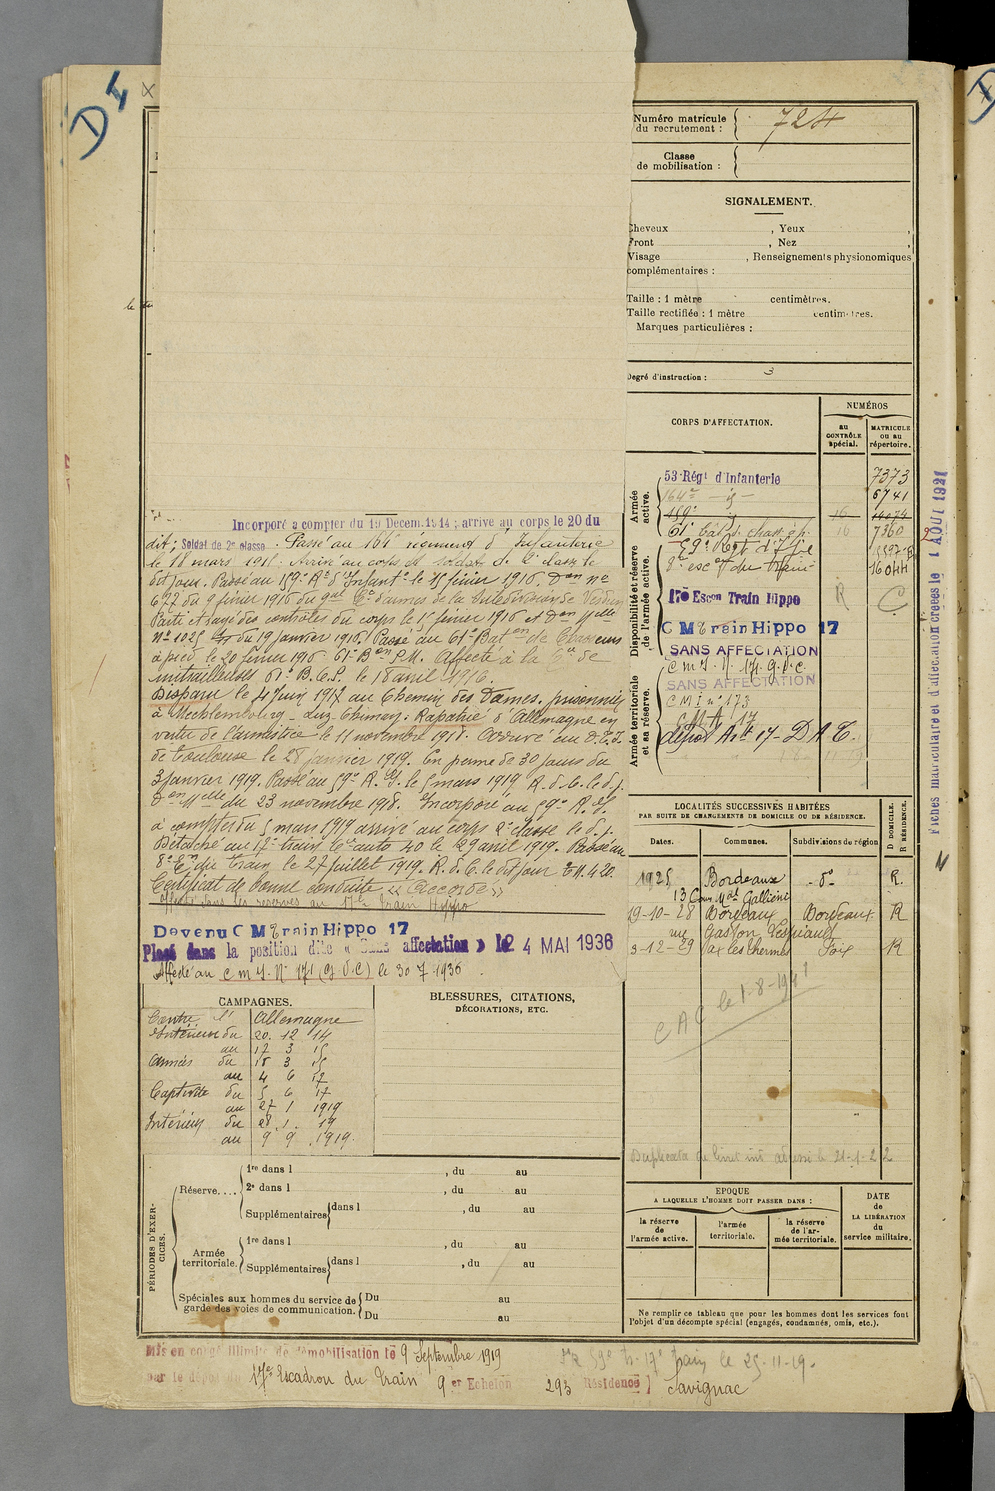 D4
Numéro matricule
du recrutement :
724
Classe
de mobilisation :
SIGNALEMENT.
Cheveux , Yeux ,
Front , Nez ,
Visage , Renseignements physionomiques
complémentaires :
Taille : 1 mètre centimètres.
Taille rectifiée : 1 mètre centimètres.
Marques particulières :
Degré d'instruction : 3
CORPS D'AFFECTATION.
NUMÉROS
au
CONTRÔLE
spécial.
MATRICULE
ou au
répertoire.
Armée
active.
53e Régt d'Infanterie 7373
164e 6741
159e 16 14074
61e Bat. de chass. à p. 16 7360
Disponibilité et réserve
de l'armée active.
59e Rgt d'Ifie
8e escon du train 16044
17e Escon Train Hippo R C
C M Train Hippo 17
SANS AFFECTATION
Armée territoriale
et sa réserve.
C m I. N. 171 G.V.C.
SANS AFFECTATION
C M I n° 173
C M A 17
dépot Artie 17 - D A T.
Incorporé à compter du 19 Décem. 1914 ; arrivé au corps le 20 du
dit ; Soldat de 2e classe. Passé au 164 régiment d'Infanterie
le 18 mars 1915. Arrivé au corps et soldat de 2e classe le
dit jour. Passé au 159e Rt d'Infantie le 15 févier 1916. Don no
677 du 9 févier 1916 du gal
Parti et rayé des contrôles du corps le 15 févier 1916 et Don Mlle
no 1025 du 19 janvier 1916. Passé au 61e Baton de Chasseurs
à pied le 20 févier 1916. 61e Bon P.M. Affecté à la Cie de
mitrailleuses 61e B.C.P. le 18 avril 1916.
Disparu le 4 juin 1917 au Chemin des Dames. prisonnier
à Mecklembourg - Rapatrié d'Allemagne en
vertu de l'armistice le 11 novembre 1918. Arrivé au D.T.I.
de Toulouse le 28 janvier 1919. En perme de 30 jours du
3 janvier 1919. Passé au 59e R. If. le 5 mars 1919. R. d. C. le d. j.
Don Mlle du 23 novembre 1918. Incorporé au 59e R. If.
à compter du 5 mars 1919 arrivé au corps 2e classe le d. j.
Détaché au 17e train Ie auto 40 le 29 avril 1919. Passé au
8e En du train le 27 juillet 1919. R. d. C. le dit jour
Certificat de bonne conduite « Accordé »
Affecté dans les réserves au 17e Train Hippo
Devenu C M Train Hippo 17
Placé dans la position dite « Sans affectation » le 24 MAI 1936
Affecté au C m I. No 171 (G V C) le 30 7 1936.
LOCALITÉS SUCCESSIVES HABITÉES
PAR SUITE DE CHANGEMENTS DE DOMICILE OU DE RÉSIDENCE.
D DOMICILE.
R RÉSIDENCE.
Dates. Communes. Subdivisions de région
1925 Bordeaux - do - R.
13 Cours Mal Galliéni
19-10-28 Bordeaux Bordeaux R
rue Gaston Lespiault
3-12-29 Ax les Thermes Foix R
C A C le 1-8-1941
Duplicata de livret ind adressé le 21-1-22
CAMPAGNES.
Contre l'Allemagne
Intérieur du 20 12 14
au 17 3 15
Armées du 18 3 15
au 4 6 17
Captivité du 5 6 17
au 27 1 1919
Intérieur du 28 1 19
au 9 9 1919.
BLESSURES, CITATIONS,
DÉCORATIONS, ETC.
PÉRIODES D'EXER-
CICES.
Réserve....
1re dans l , du au
2e dans l , du au
Supplémentaires dans l , du au
au
Armée
territoriale.
1re dans l , du au
Supplémentaires dans l , du au
au
Spéciales aux hommes du service de
garde des voies de communication.
Du au
Du au
EPOQUE
A LAQUELLE L'HOMME DOIT PASSER DANS :
la réserve
de
l'armée active.
l'armée
territoriale.
la réserve
de l'ar-
mée territoriale.
DATE
de
LA LIBÉRATION
du
service militaire.
Ne remplir ce tableau que pour les hommes dont les services font
l'objet d'un décompte spécial (engagés, condamnés, omis, etc.).
Mis en congé illimité de démobilisation le 9 Septembre 1919
par le dépôt du 17e Escadron du Train 9er Echelon 293 Résidence Savignac
le 25-11-19.
Fiches matriculaire et d'affectation créées le 1 AOUT 1921